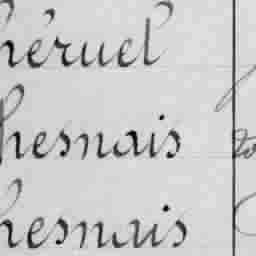 héruel
hesnais
hesnais